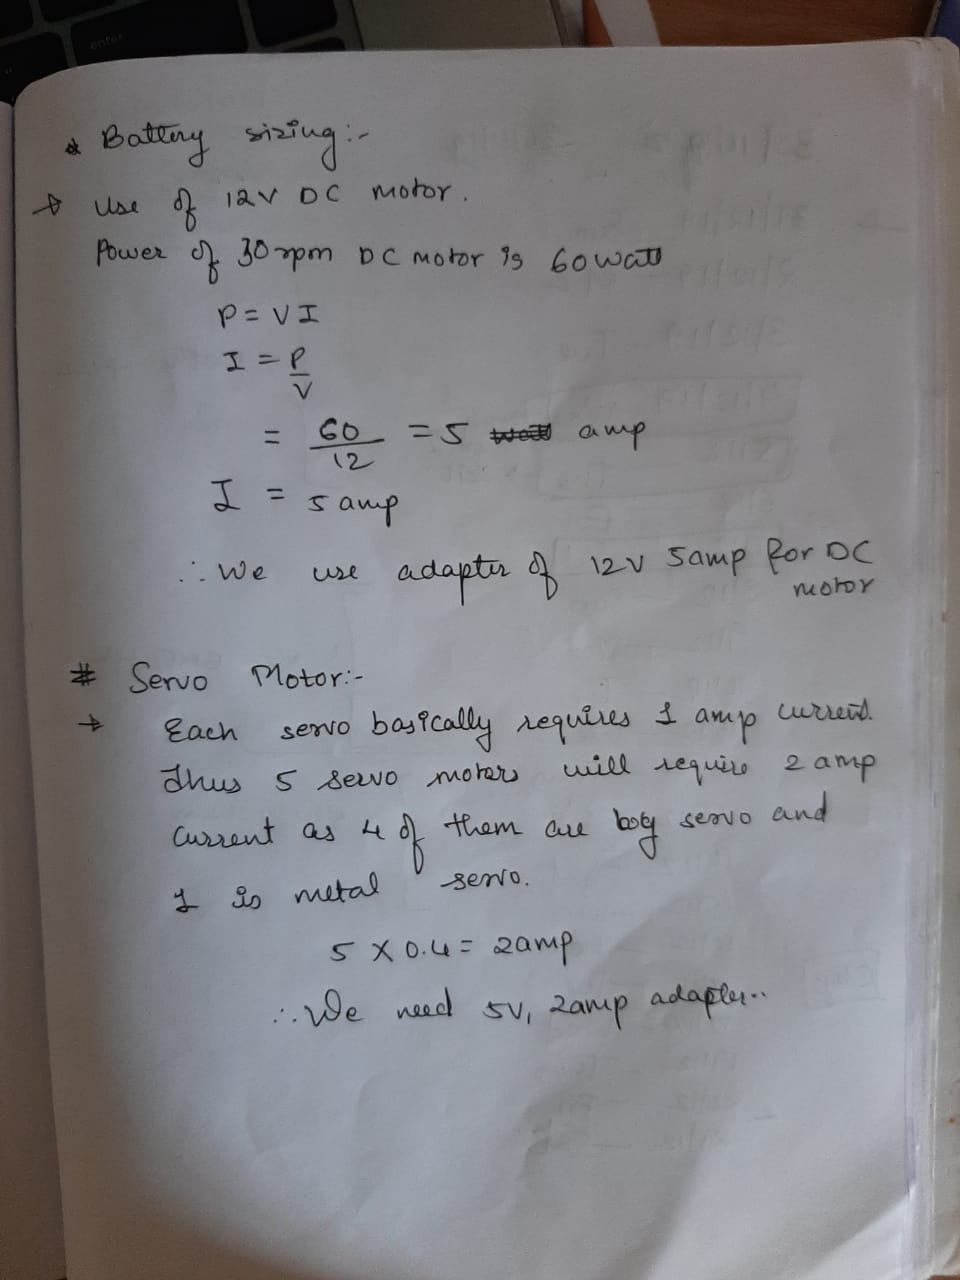 * Battery sizing:-
→ Use of 12V DC motor.
Power of 30 rpm DC motor is 60 watt
P = VI
I = P/V
= 60/12 = 5 amp
I = 5 amp
∴ We use adapter of 12V 5amp for DC
motor
# Servo Motor:-
→ Each servo basically requires 1 amp current.
Thus 5 servo motors will require 2 amp
current as 4 of them are servo and
1 is metal servo.
5 X 0.4 = 2amp
∴ We need 5V, 2amp adapter..
enter